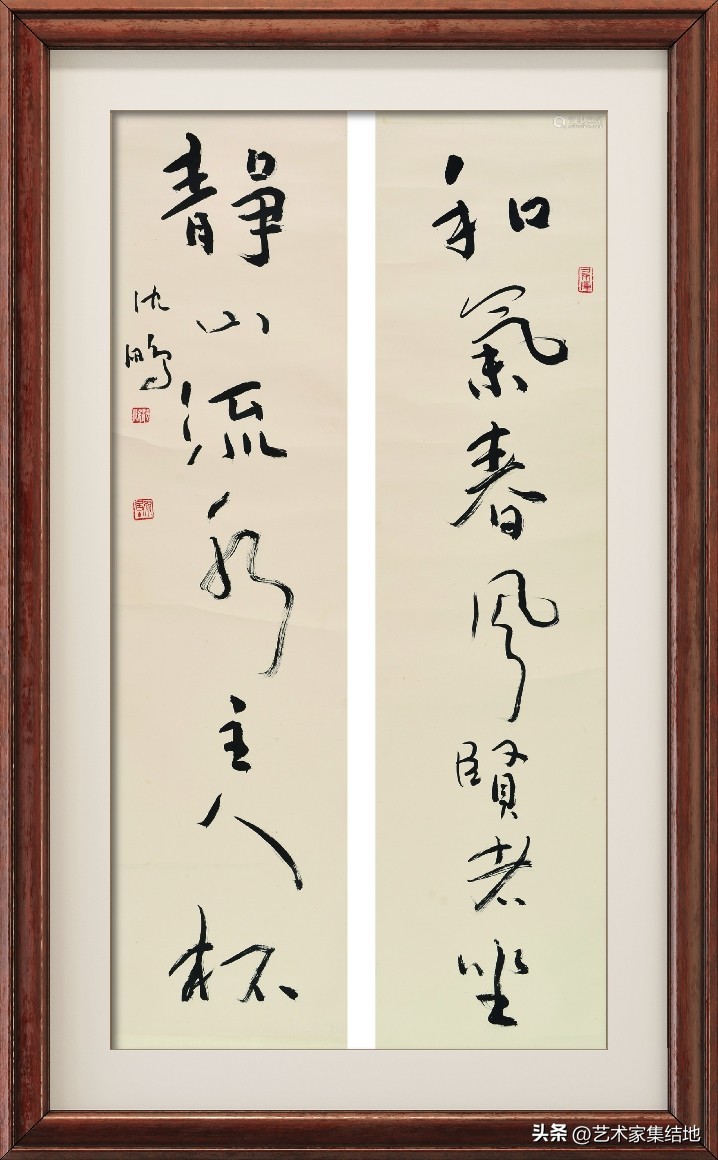 和氣春風賢者坐
靜山流水主人杯
沈鵬
头条 @艺术家集结地